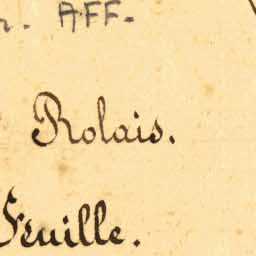 r. AFF.
Rolais.
Feuille.